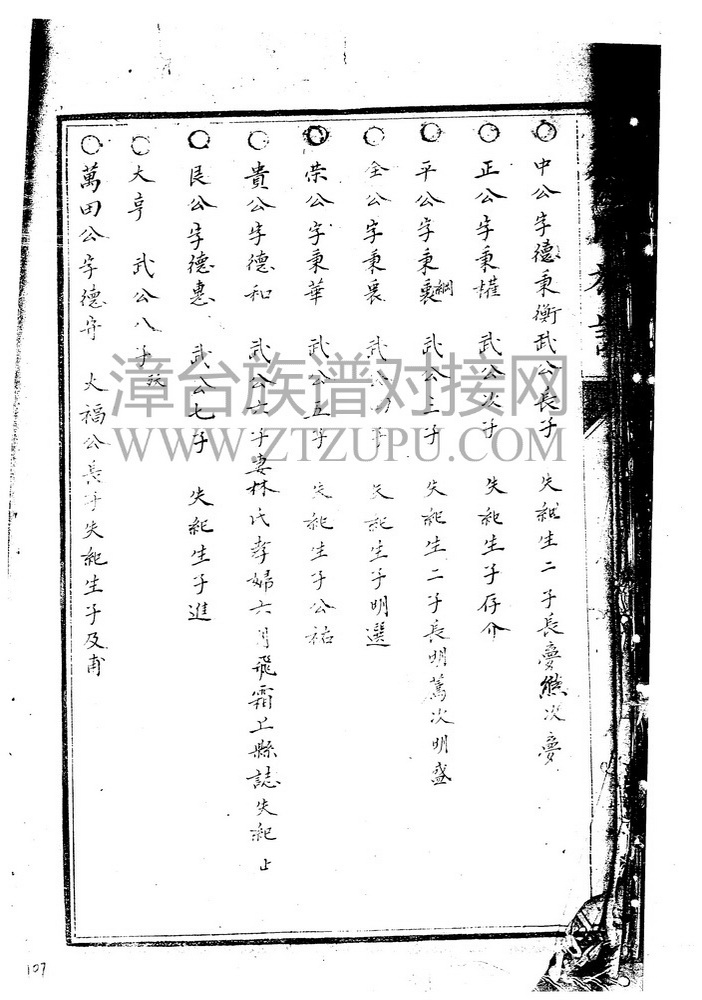 中公字德秉衡武公長子 失紀生二子長夢熊次夢
正公字秉權 武公次子 失紀生子存介
平公字秉襄綱 武公三子 失紀生二子長明蔦次明盛
全公字秉襄 武公 子 失紀生子明選
荣公字秉華 武公五子 失紀生子公祐
貴公字德和 武公六子妻林氏孝婦六月飛霜上縣誌失紀止
良公字德惠 武公七子 失紀生子進
大亨 武公八子
萬田公字德守 大福公長子失紀生子及甫
漳台族谱对接网
WWW.ZTZUPU.COM
107